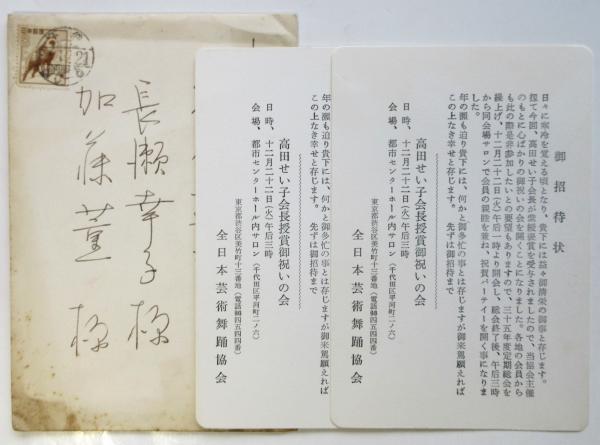 御招待状
日々に寒冷を覚える頃となり、貴下には益々御清栄の御事と存じます。
扨て今回、高田せい子会長が紫綬褒賞を受与されましたので、当協会主催
のもとに心ばかりの御祝いの会を開くことになりました。各地の会員から
も此の際是非参加したいとの要望もありますので、三十五年度定期総会を
繰上げ、十二月二十二日(火)午后一時より開会し、総会終了後、午后三時
から同会場サロンで会員の親睦を兼ね、祝賀パーテイーを開く事になりま
した。
年の瀬も迫り貴下には、何かと御多忙の事とは存じますが御来駕願えれば
この上なき幸せと存じます。先ずは御招待まで
高田せい子会長授賞御祝いの会
日時、十二月二十二日(火)午后三時
会場、都市センターホール内サロン(千代田区平河町二ノ六)
東京都渋谷区美竹町十三番地(電話四五五四四番)
全日本芸術舞踊協会
年の瀬も迫り貴下には、何かと御多忙の事とは存じますが御来駕願えれば
この上なき幸せと存じます。先ずは御招待まで
高田せい子会長授賞御祝いの会
日時、十二月二十二日(火)午后三時
会場、都市センターホール内サロン(千代田区平河町二ノ六)
東京都渋谷区美竹町十三番地(電話四五五四四番)
全日本芸術舞踊協会
長瀬幸子様
加藤薫様
日本郵便
21